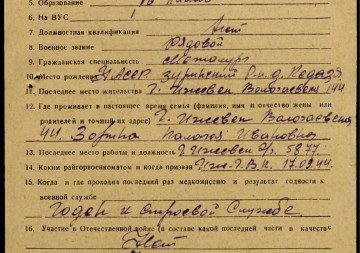 5. Образование
6. На ВУС
7. Должностная квалификация Нет
8. Военное звание Рядовой
9. Гражданская специальность
10. Место рождения УАССР. Зуринский р-н. д.
11. Последнее место жительства г. Ижевск Вологаевская 144
12. Где проживает в настоящее время семья (фамилия, имя и отчество жены или
родителей и точный их адрес) г. Ижевск Вологаевская
44. Зорина Ивановна
13. Последнее место работы и должность г. Ижевск 5877
14. Каким райгорвоенкоматом и когда призван Иж. Г.В.К. 17.02.44.
15. Когда и где проходил последний раз медкомиссию и результат годности к
военной службе
Годен к строевой службе.
16. Участие в Отечественной войне (в составе какой последней части в качестве
Нет